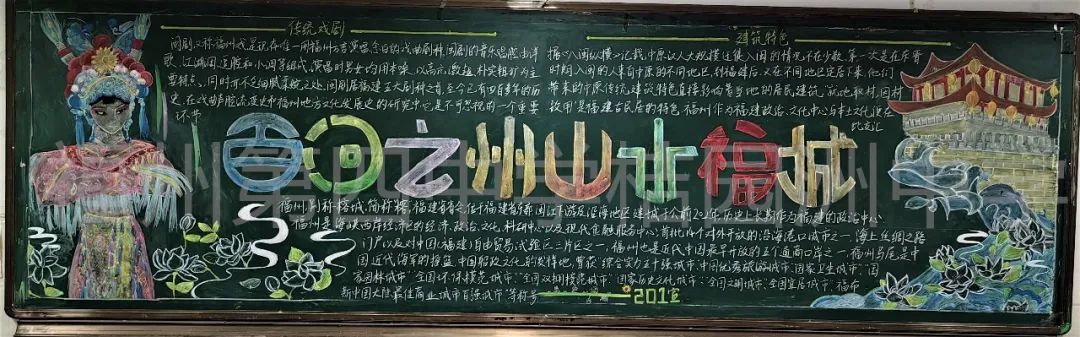 传统戏剧
闽剧又称福州戏是现存唯一用福州方言演唱、念白的戏曲剧种,闽剧的音乐唱腔由洋
歌、江湖、逗腔和小调等组成,演唱时男女均用本嗓,以高亢激越,朴实粗犷为主
要特点,同时亦不乏细腻柔婉之处。闽剧居福建五大剧种之首,至今已有四百多年的历
史,在戏曲声腔流变史和福州地方文化发展史的研究中,它是不可忽视的一个重要
环节
建筑特色
据《八闽纵横》记载,中原汉人大规模迁徙入闽的情况不在少数,第一次是在东晋
时期,入闽的人来自中原的不同地区,到福建后,又在不同地区定居下来,他们
带来的中原传统建筑特色直接影响着当地的居民建筑,就地取材,因材
致用是福建古民居的特色。福州作为福建政治、文化中心与本土文化便在
此交汇
百河之州山水福城
福州,别称榕城,简称榕,福建省省会,位于福建省东部闽江下游及沿海地区,建城于公前202年,历史上长期作为福建的政治中心
福州是海峡西岸经济区的经济、政治、文化、科研中心以及现代金融服务中心;首批14个对外开放的沿海港口城市之一,海上丝绸之路
门户以及对中国(福建)自由贸易试验区三片区之一。福州也是近代中国最早开放的五个通商口岸之一,福州马尾是中
国近代海军的摇篮、中国船政文化的发祥地,曾获“综合实力五十强城市”“中国优秀旅游城市”“国家卫生城市”“国
家园林城市”“全国环保模范城市”“全国双拥模范城市”“国家历史文化城市”“全国文明城市”“全国宜居城市”“福布
斯中国大陆最佳商业城市百强城市”等称号
201宣